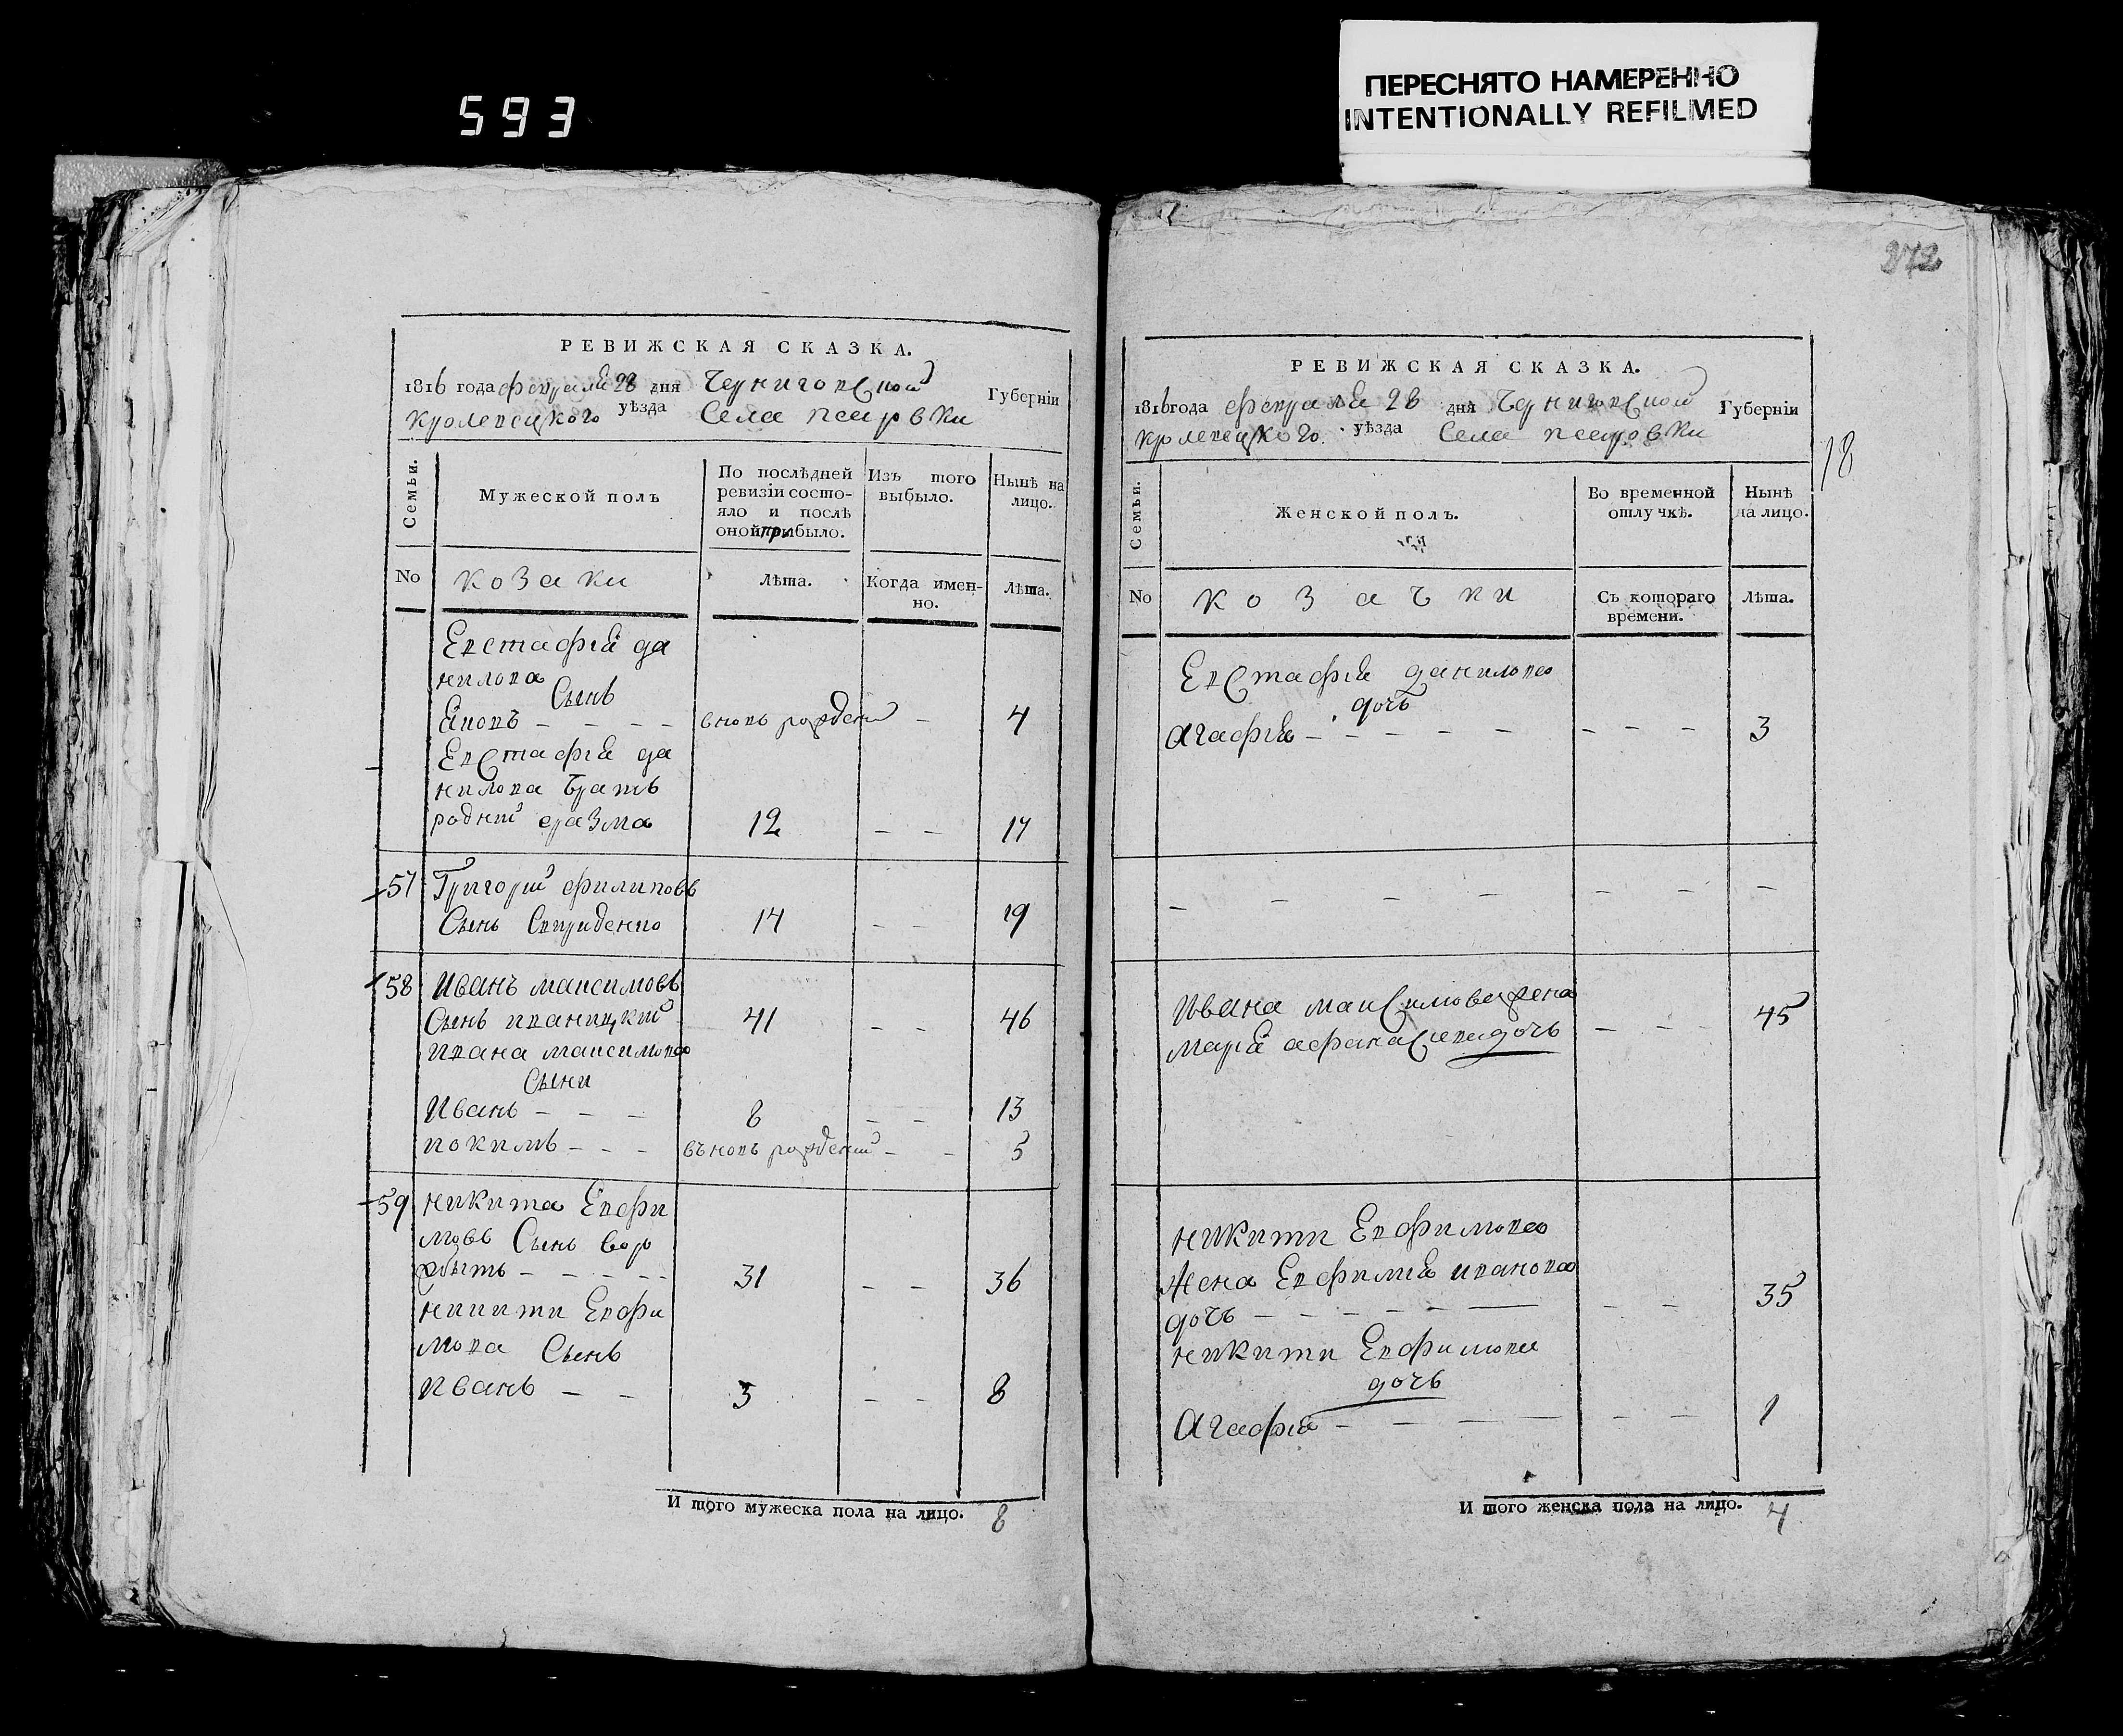 593
ПЕРЕСНЯТО НАМЕРЕННО
INTENTIONALLY REFILMED
272
РЕВИЖСКАЯ СКАЗКА.
1816 года февраля 28 дня Черниговской Губерніи
кролевецкого уѣзда Села петровки
Семьи.
Мужеской полъ
По послѣдней
ревизіи состо-
яло и послѣ
оной прибыло.
Изъ того
выбыло.
Нынѣ на
лицо.
No
козаки
Лѣта.
Когда имен-
но.
Лѣта.
Евстафія да
нилова
Сынъ
вновь рожденъ - 4
Евстафія да
нилова братъ
родній 12 - - 17
57 Григорій филиповъ
Сынъ 14 - - 19
58 Иванъ максимовъ
Сынъ иваницкій 41 - - 46
ивана максимова
Сыни
Иванъ - - - 8 - - 13
- - - въновь рожденій - - 5
59 никита Евфи
мовъ Сынъ воро
- - - - - 31 - - 36
никити Евфи
мова Сынъ
иванъ - - 3 - - 8
И того мужеска пола на лицо. 8
РЕВИЖСКАЯ СКАЗКА.
1816 года февраля 28 дня Черниговской Губерніи
кролевецкого уѣзда Села петровки
18
Семьи.
Женской полъ.
Во временной
отлучкѣ.
Нынѣ
на лицо.
No
козачки
Съ котораго
времени.
Лѣта.
Евстафія данилова
дочь
агафія - - - - - - - - 3
- - - - - - - -
Ивана максимова жена
марія афанасиева дочь - - - 45
никити Евфимова
жена Евфимія иванова
дочь - - - - - - - - 35
никити Евфимова
дочь
агафія - - - - - - 1
И того женска пола на лицо. 4